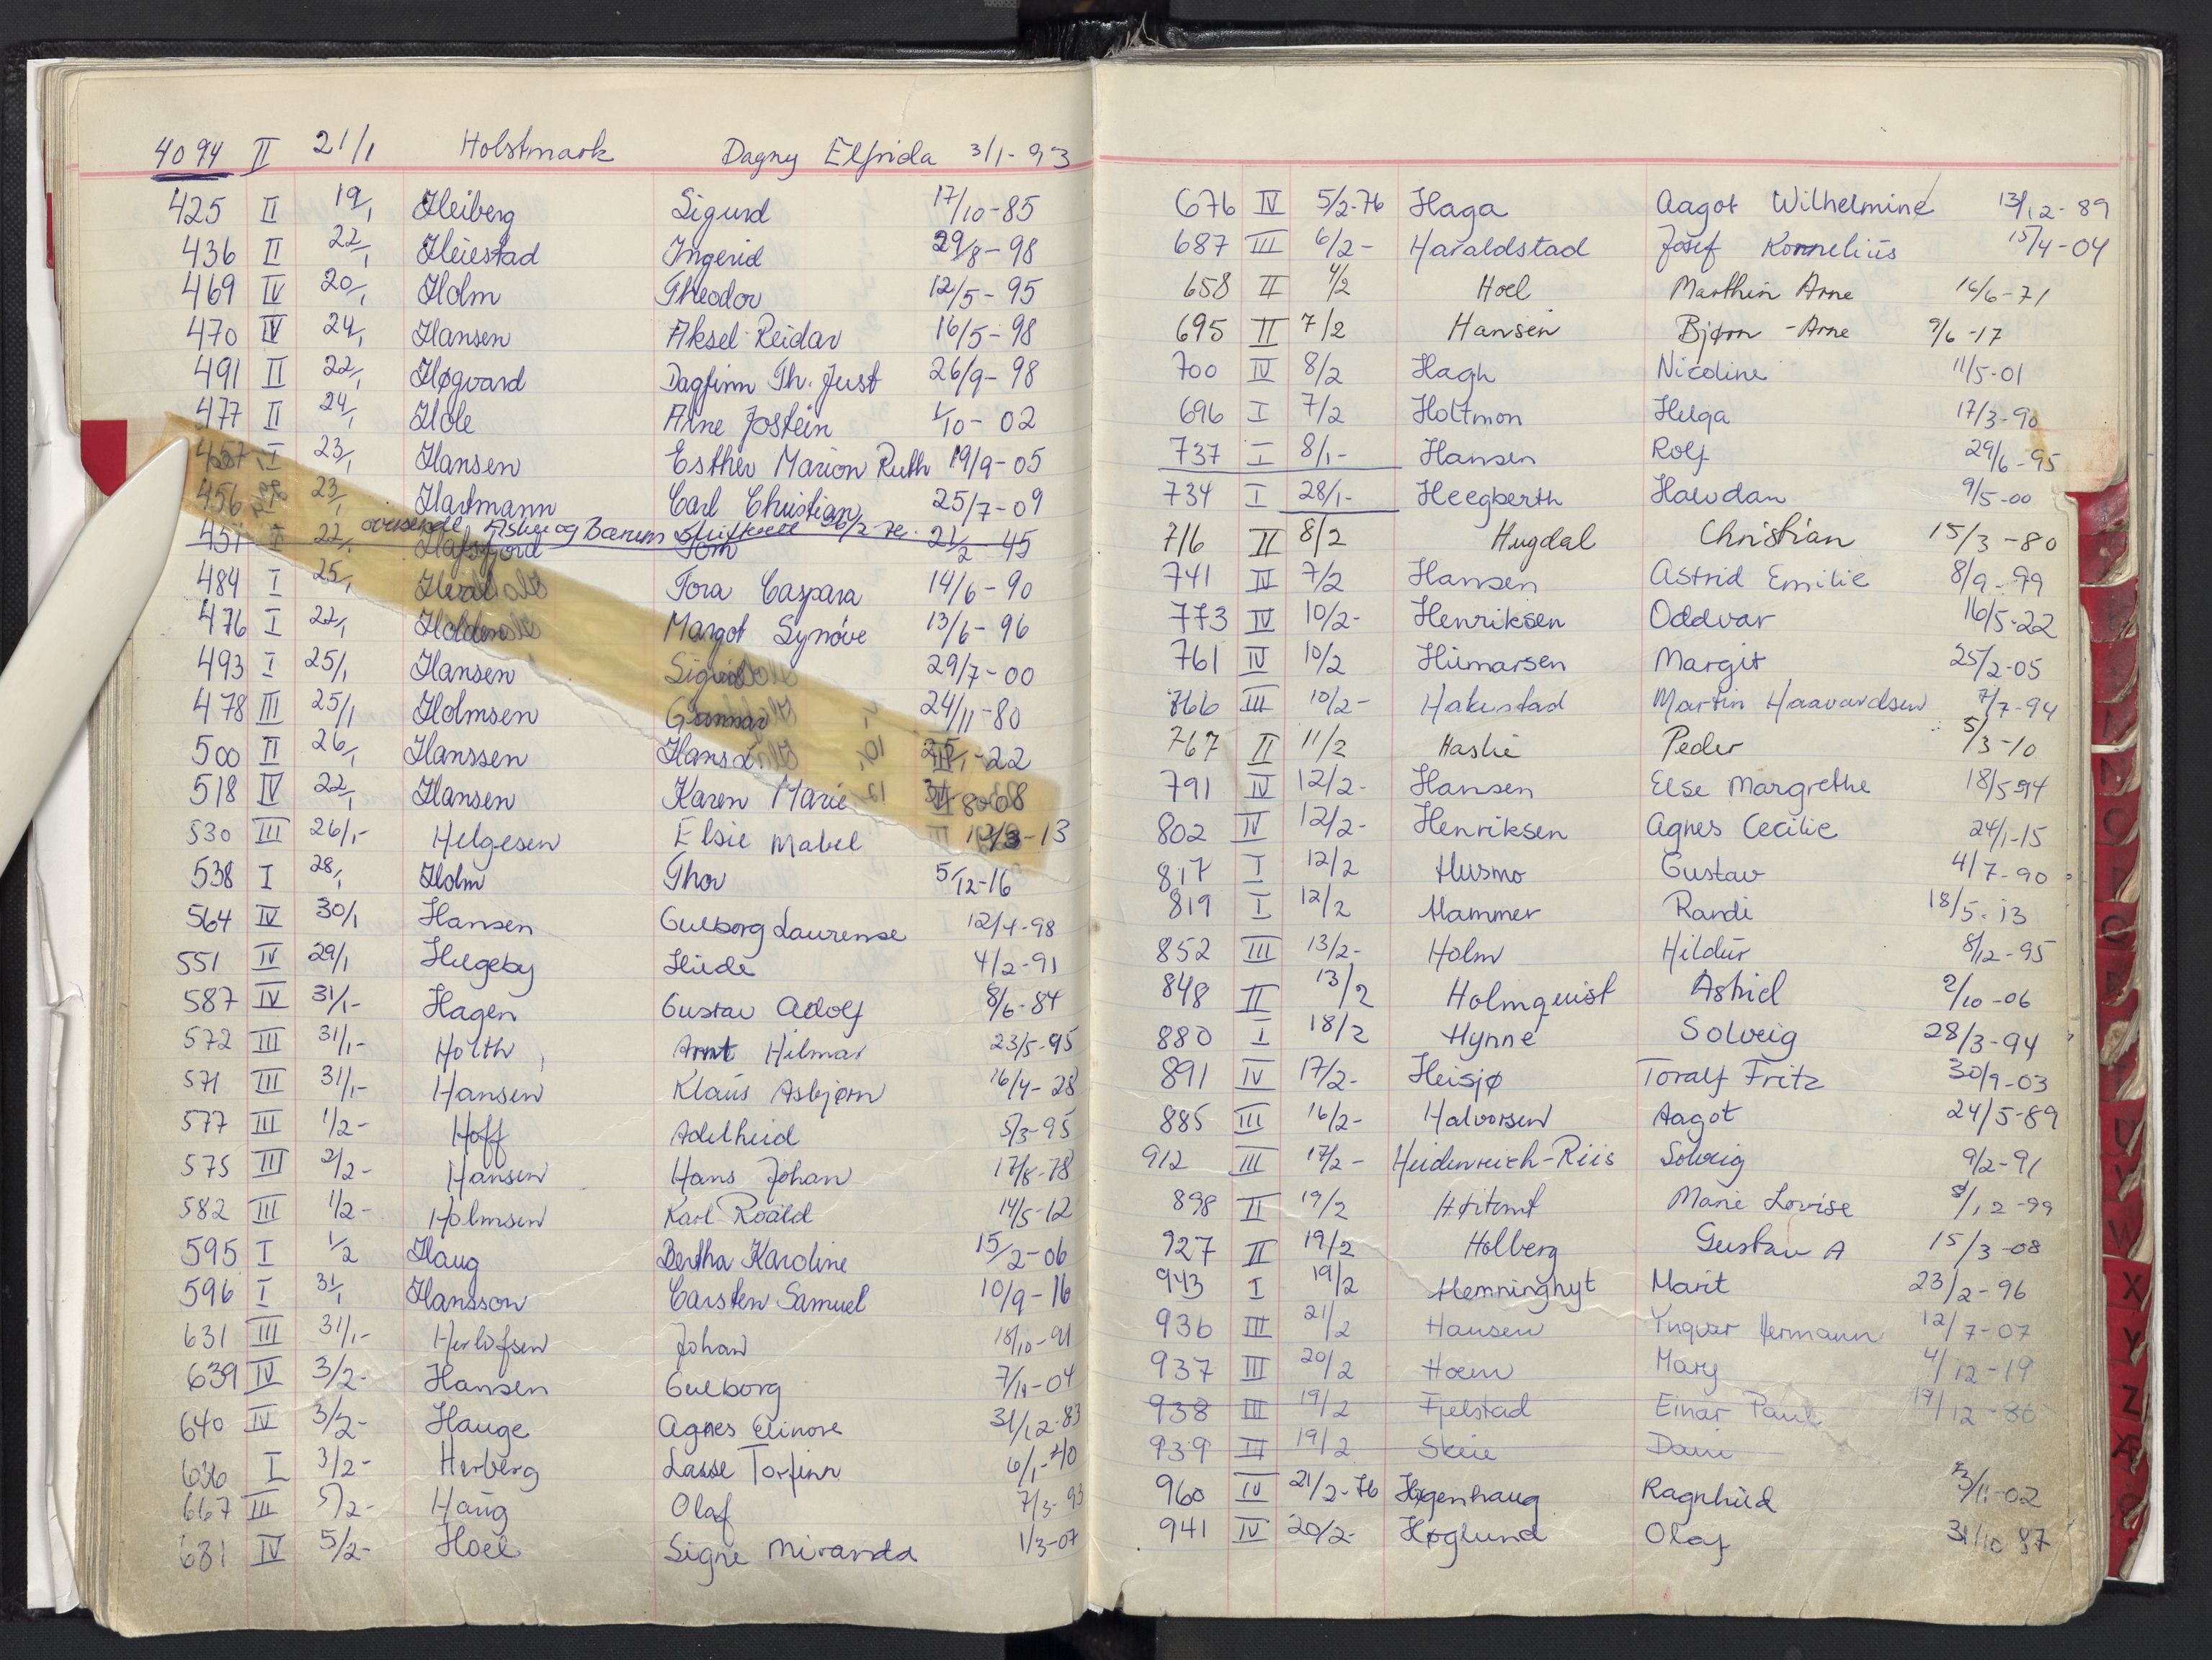 4094 II 21/1 Holstmark Dagny Elfrida 3/1-93
425 II 19/1 Heiberg Sigurd 17/10-85
436 II 22/1 Heiestad Ingerid 29/8-98
469 IV 20/1 Holm Theodor 12/5-95
470 IV 24/1 Hansen Aksel Reidar 16/5-98
491 II 22/1 Høgvard Dagfinn Th. Just 26/9-98
477 II 24/1 Hole Arne Jostein 1/10-02
457 I 23/1 Hansen Esther Marion Ruth 19/9-05
456 I 23/1 Hartmann Carl Christian 25/7-09
oversendt Asker og Bærum Skifterett
451 I 22/1 Hafsfjord Tom 21/2 45
484 I 25/1 Tora Caspara 14/6-90
476 I 22/1 Holden Margot Synøve 13/6-96
493 I 25/1 Hansen Sigrid 29/7-00
478 III 25/1 Holmsen Gunnar 24/11-80
500 II 26/1 Hanssen Hans -22
518 IV 22/1 Hansen Karen Marie
530 III 26/1- Helgesen Elsie Mabel 12/3-13
538 I 28/1 Holm Thor 5/12-16
564 IV 30/1 Hansen Gulborg Laurense 12/4-98
551 IV 29/1 Helgeby Hilde 4/2-91
587 IV 31/1- Hagen Gustav Adolf 8/6-84
572 III 31/1- Holth Arnt Hilmar 23/5-95
571 III 31/1- Hansen Klaus Asbjørn 16/4-28
577 III 1/2- Hoff Adelheid 5/3-95
575 III 2/2- Hansen Hans Johan 17/8-78
582 III 1/2- Holmsen Karl Roald 14/5-12
595 I 1/2 Haug Bertha Karoline 15/2-06
596 I 31/1 Hansson Carsten Samuel 10/9-16
631 III 31/1- Herlofsen Johan 18/10-91
639 IV 3/2- Hansen Gulborg 7/11-04
640 IV 3/2- Hauge Agnes Elinore 31/12-83
636 I 3/2- Herberg Lasse Torfinn 6/1-40
667 III 5/2- Haug Olaf 7/3-93
681 IV 5/2- Hoel Signe Miranda 1/3-07
676 IV 5/2-76 Haga Aagot Wilhelmine 13/12-89
687 III 6/2- Haraldstad Josef Kornelius 15/4-04
658 II 4/2 Hoel Marthin Arne 16/6-71
695 II 7/2 Hansen Bjørn-Arne 9/6-17
700 IV 8/2 Hagh Nicoline 11/5-01
696 I 7/2 Holtmon Helga 17/3-90
737 I 8/1- Hansen Rolf 29/6-95
734 I 28/1- Heegberth Halvdan 9/5-00
716 II 8/2 Hugdal Christian 15/3-80
741 IV 7/2 Hansen Astrid Emilie 8/9-99
773 IV 10/2- Henriksen Oddvar 16/5-22
761 IV 10/2 Hilmarsen Margit 25/2-05
766 III 10/2- Hakestad Martin Haavardsen 7/7-94
767 II 11/2 Haslie Peder 5/3-10
791 IV 12/2- Hansen Else Margrethe 18/5-94
802 IV 12/2- Henriksen Agnes Cecilie 24/1-15
817 I 12/2 Husmo Gustav 4/7-90
819 I 12/2 Hammer Randi 18/5-13
852 III 13/2- Holm Hildur 8/12-95
848 II 13/2 Holmquist Astrid 2/10-06
880 I 18/2 Hynne Solveig 28/3-94
891 IV 17/2- Heisjø Toralf Fritz 30/9-03
885 III 16/2- Halvorsen Aagot 24/5-89
912 III 17/2- Heidenreich-Riis Solveig 9/2-91
898 II 19/2 Marie Lovise 8/12-99
927 II 19/2 Holberg Gustav A 15/3-08
943 I 19/2 Hemninghyt Marit 23/2-96
936 III 21/2 Hansen Yngvar Hermann 12/7-07
937 III 20/2 Hoem Mary 4/12-19
938 III 19/2 Fjelstad Einar Paul 19/12-86
939 III 19/2 Skeie
960 IV 21/2-76 Høgenhaug Ragnhild 3/11-02
941 IV 20/2- Høglund Olaf 31/10 87
O
X
Y
Z
Æ